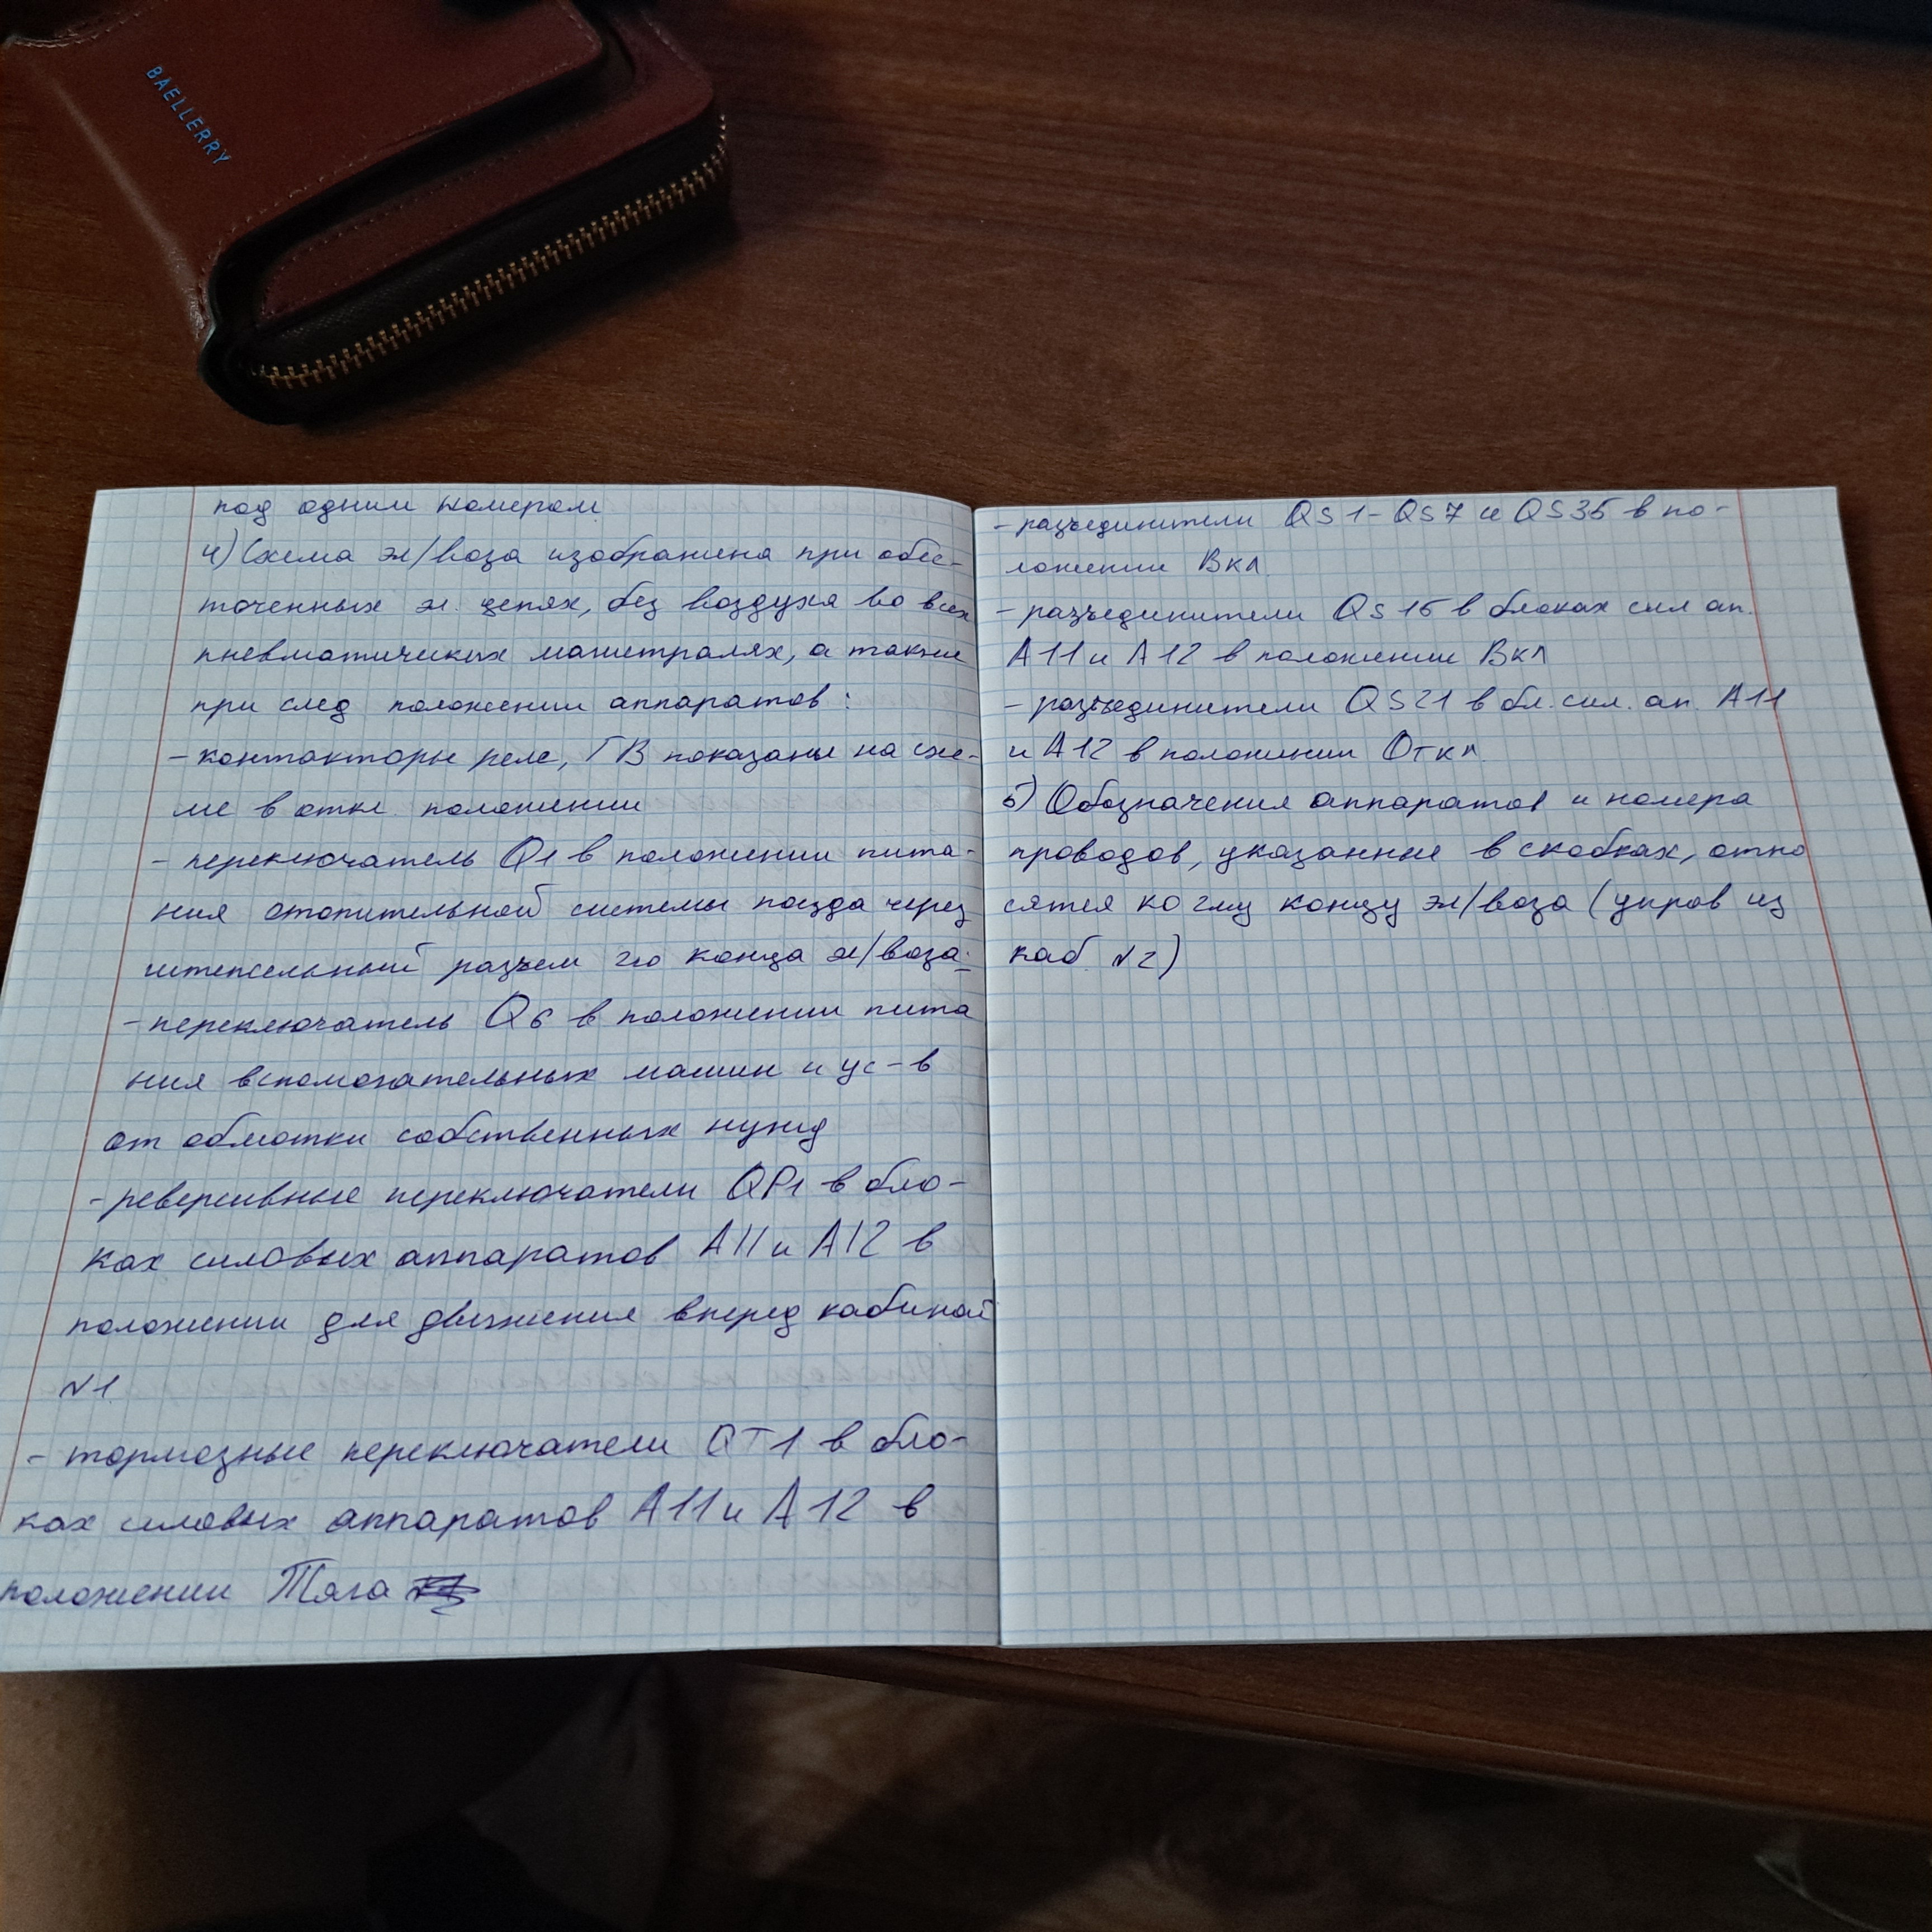 BAELLERRY
под одним номером
4) Схема эл/воза изображена при обес-
точенных эл. цепях, без воздуха во всех
пневматических магистралях, а также
при след положении аппаратов:
- контакторы реле, ГВ показаны на схе-
ме в откл. положении
- переключатель Q1 в положении пита-
ния отопительной системы поезда через
штепсельный разъем 2го конца эл/воза.
- переключатель Q6 в положении пита
ния вспомогательных машин и ус-в
от обмотки собственных нужд
- реверсивные переключатели QP1 в бло-
ках силовых аппаратов А11 и А12 в
положении для движения вперед кабиной
№1
- тормозные переключатели QT1 в бло-
ках силовых аппаратов А11 и А12 в
положении Тяга
- разъединители QS1-QS7 и QS35 в по-
ложении Вкл.
- разъединители QS15 в блоках сил ап.
А11 и А12 в положении Вкл
- разъединители QS21 в бл. сил. ап. А11
и А12 в положении Откл.
5) Обозначения аппаратов и номера
проводов, указанные в скобках, отно
сятся ко 2му концу эл/воза (управ из
каб. №2)